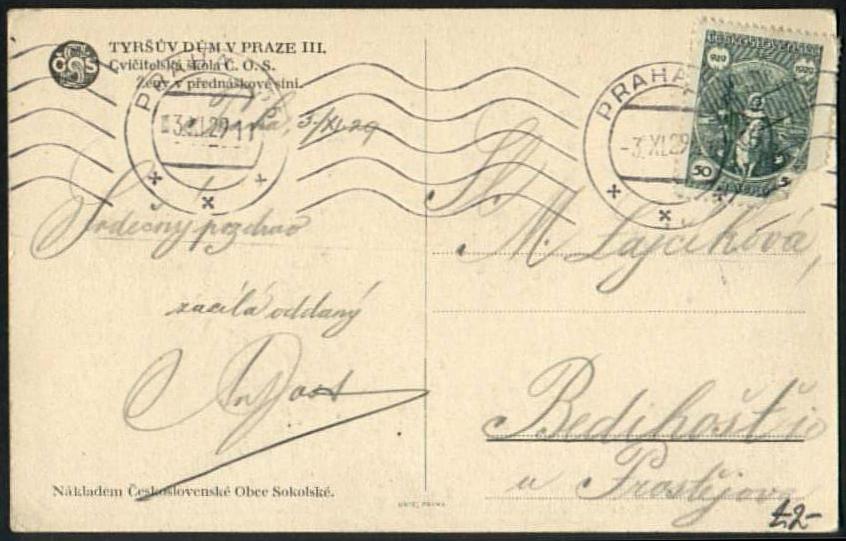 TYRŠŮV DŮM V PRAZE III.
Cvičitelská škola Č. O. S.
Ženy v přednáškové síni.
ČOS
PRAHA
3.XI.29 11
Praha, 3/XI.29
Srdečný pozdrav
zasílá oddaný
Nákladem Československé Obce Sokolské.
PRAHA
-3.XI.29
ČESKOSLOVENSKO
929 1929
50
Sl.
M. Lajčíková,
Bedihošť
u Prostějova
£2-